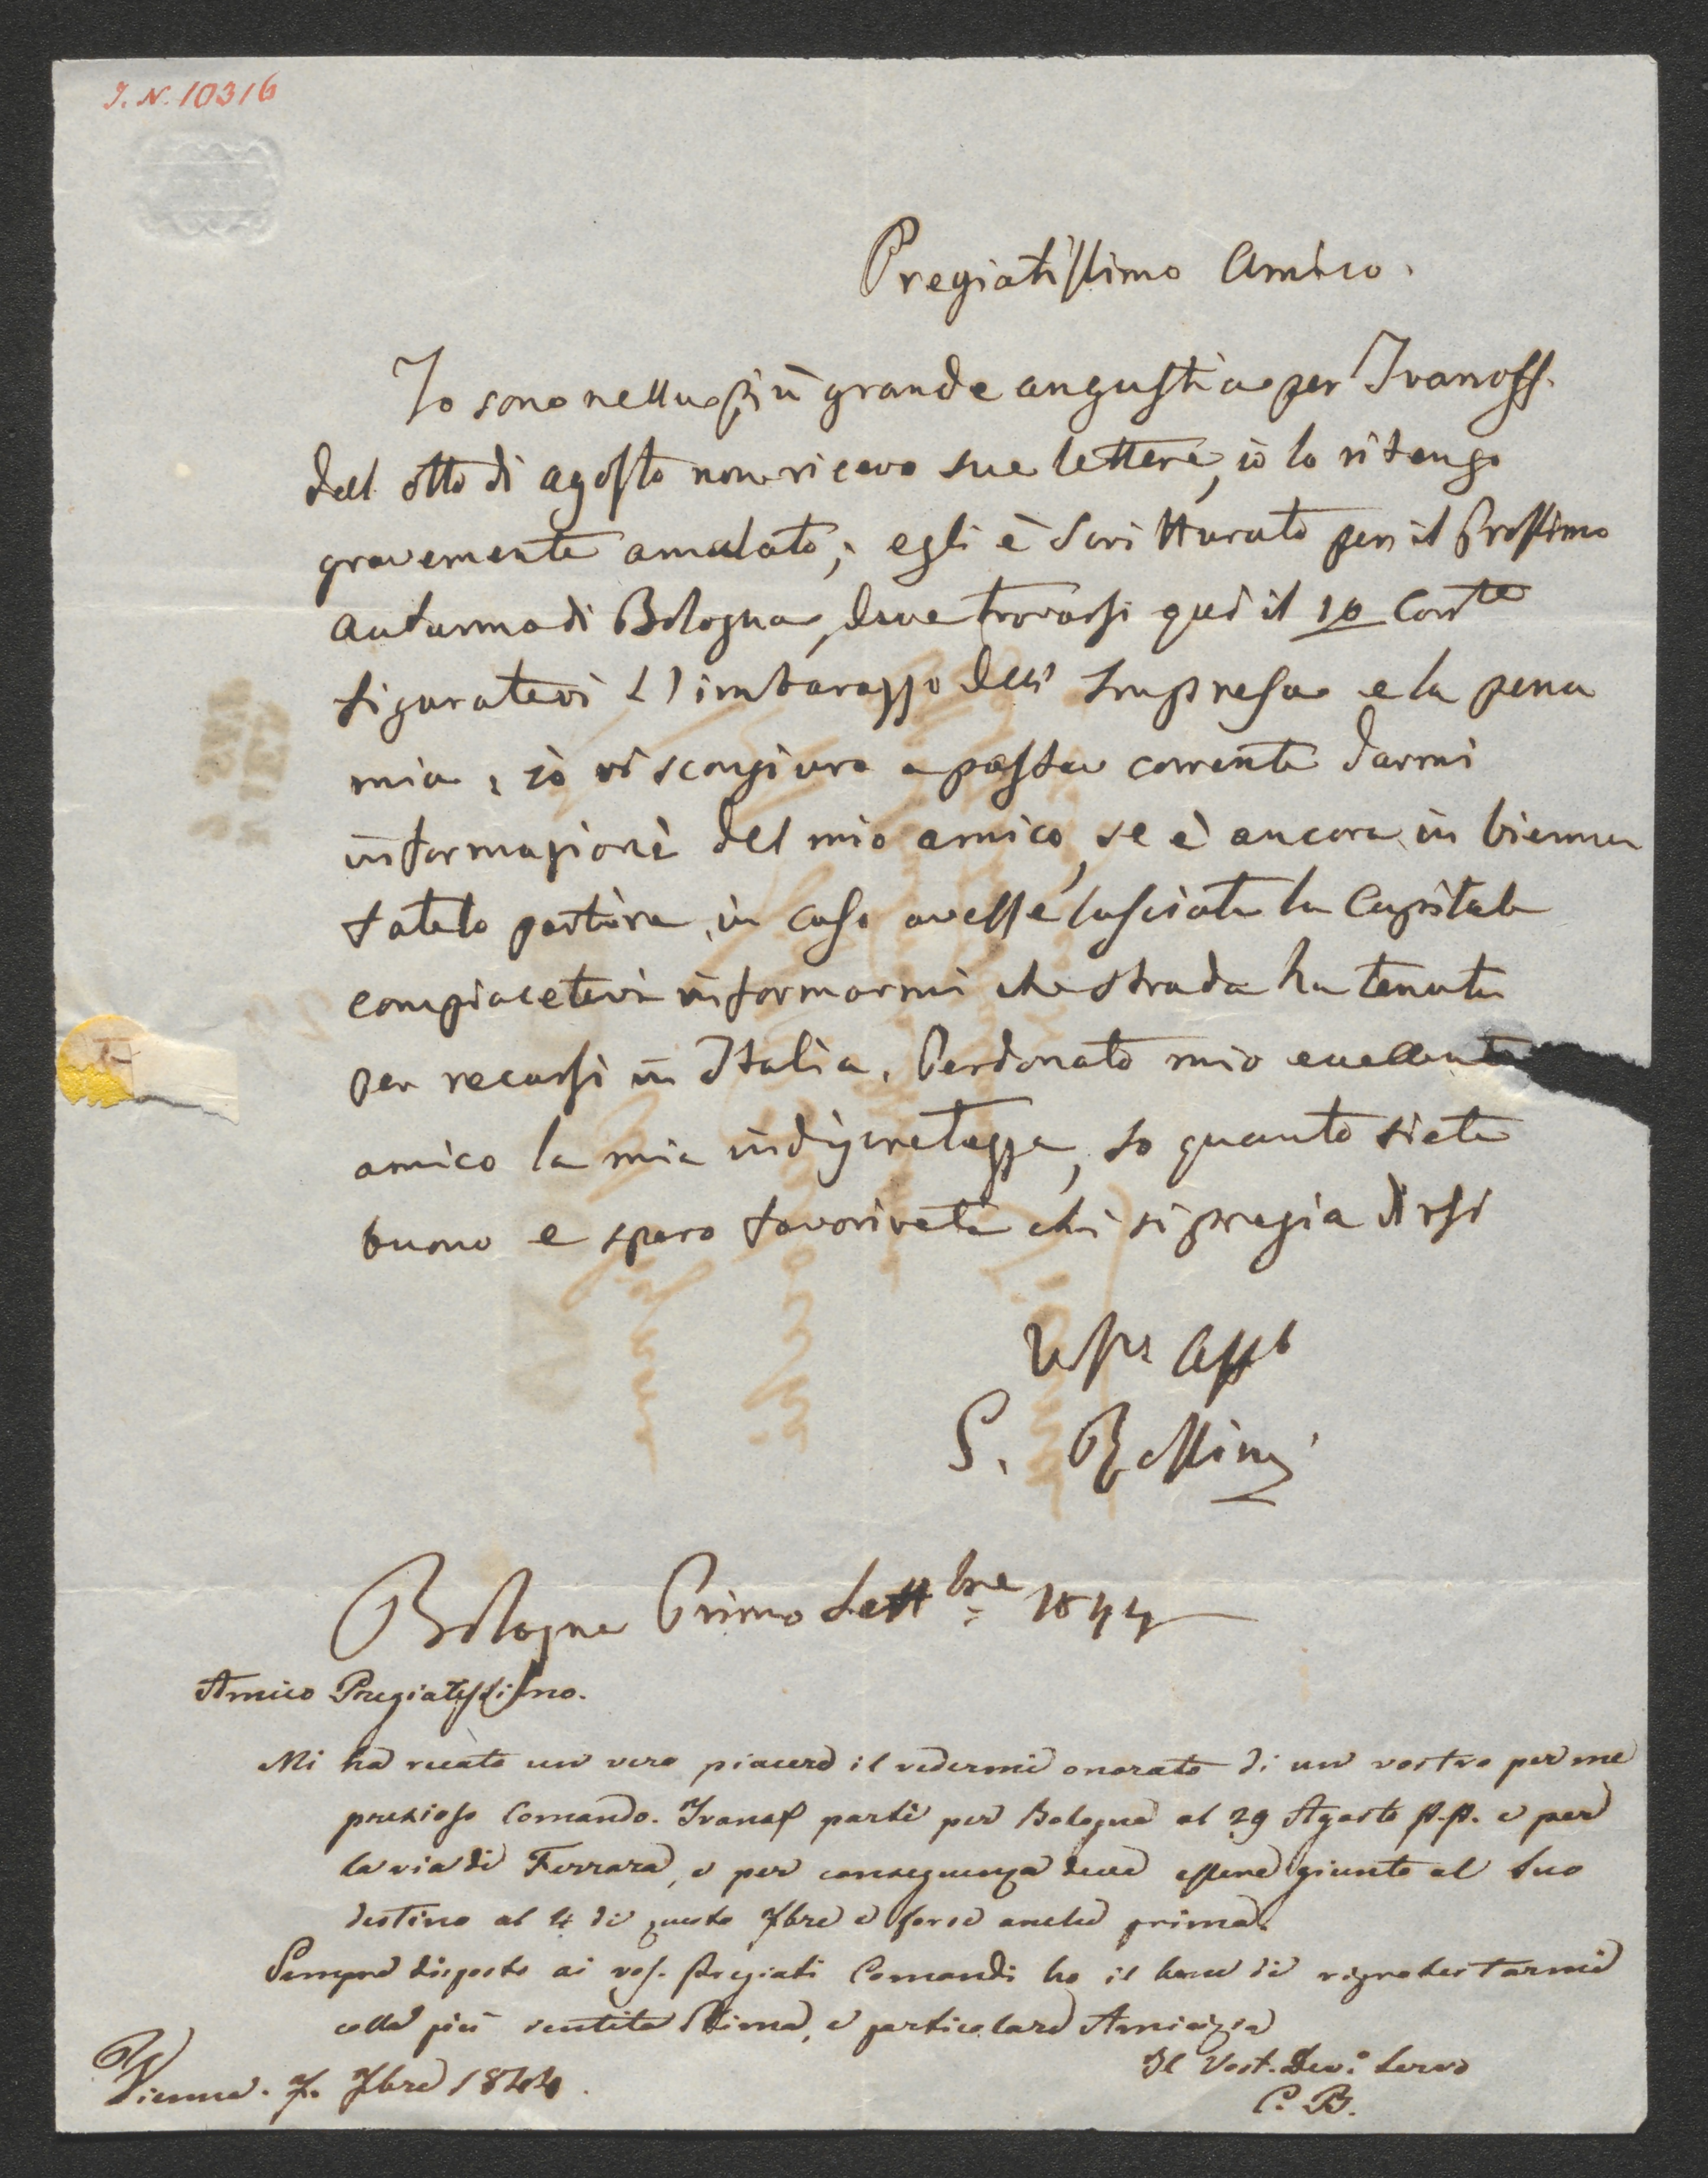 J. N. 10316
Pregiatissimo Amico.
Io sono nella più grande angustia per Ivanoff.
dall otto di agosto non ricevo sue lettere, io lo ritengo
gravemente amalato; egli è scritturato per il Prossimo
autunno di Bologna, deve trovarsi quì il 10 Corrte
figuratevi L'imbarazzo dell' Impresa e la pena
mia, io vi scongiuro a posta corrente darmi
informazioni del mio amico, se è ancora in Vienna
fatelo partire, in caso avesse lasciata la Capitale
compiacetevi informarmi che strada ha tenuta
per recarsi in Italia. Perdonate mio eccellente
amico la mia indiscretezza, so quanto siete
buono e spero favorirete chi si pregia dirsi
Vostr Affo
G. Rossini
Bologna Primo Settbre 1844
Amico Pregiatissimo.
Mi ha recato un vero piacere il vedermi onorato di un vostro per me
prezioso Comando. Ivanof partì per Bologna al 29 Agosto p.p. e per
la via di Ferrara, e per conseguenza deve essere giunto al suo
destino al 4 di questo 7bre e forse anche prima.
Sempre disposto ai vos. Pregiati Comandi ho il bene di riprotestarmi
colla più sentita Stima, e particolare Amicizia
Il Vost. Dev.o servo
C. B.
Vienna. 7. 7bre 1844.